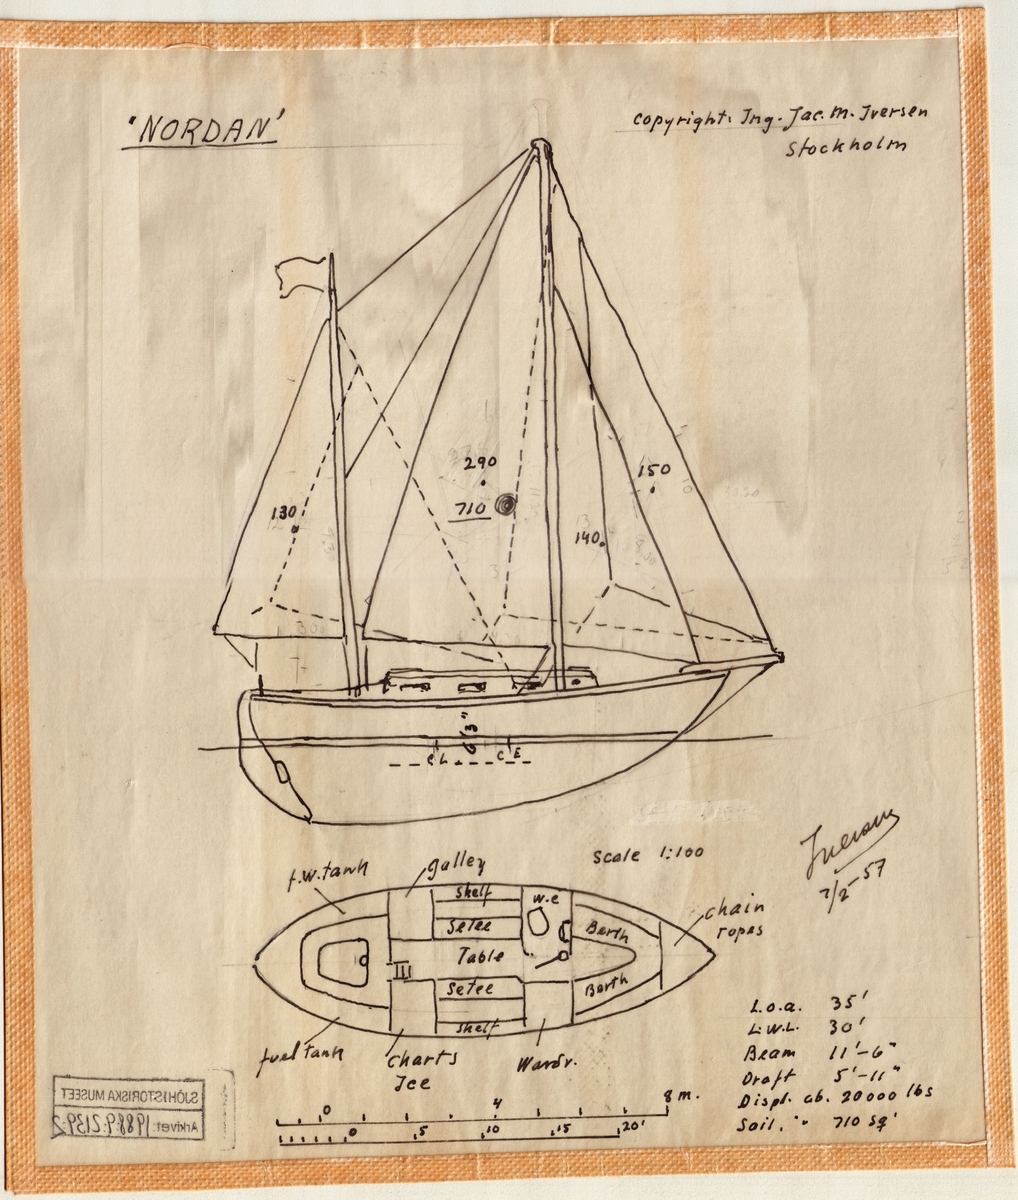 'NORDAN'
Copyright: Ing. Jac. M. Iversen
Stockholm
290
710
130
150
140
6'3"
C L
C E
Scale 1:100
Iversen
7/2-57
f.w. tank
galley
Shelf
w.c
Setee
Berth
Table
chain
ropes
Setee
Berth
Shelf
fuel tank
Charts
Ice
Wardr.
L.o.a. 35'
L.W.L. 30'
Beam 11'-6"
Draft 5'-11"
Displ. ab. 20000 lbs
Sail. " 710 sq'
0 4 8 m.
0 5 10 15 20'
SJÖHISTORISKA MUSEET
Arkivet: 19889:2139:2